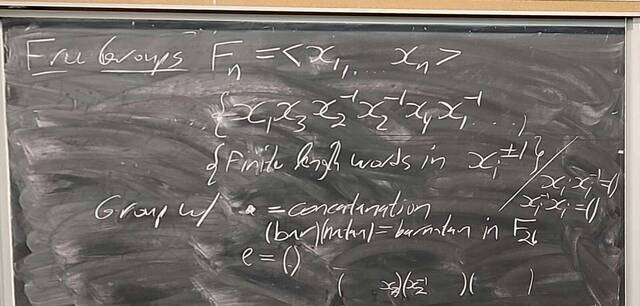 Free Groups F_n = <x_1, ... x_n>
{x_1 x_3 x_2^{-1} x_2^{-1} x_4 x_1^{-1} ..., }
{Finite length words in x_i^{±1}} / x_i x_i^{-1} = () x_i^{-1} x_i = ()
Group w/ • = concatenation
= in F_26
e = ()
( x_2)(x_2^{-1} )( )